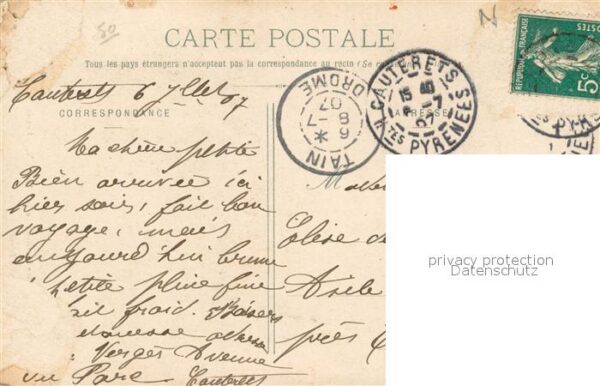 80
N
CARTE POSTALE
Tous les pays étrangers n'acceptent pas la correspondance au recto (Se
REPUBLIQUE FRANÇAISE
POSTES
5c
Cauterets 6 Jllet 07
CORRESPONDANCE
ADRESSE
TAIN
DROME
6 8-7 07
CAUTERETS
15
6-7
07
HTES PYRENEES
Ma chère petite
Bien arrivée ici
hier soir, fait bon
voyage, mais
aujourd'hui brume
petite pluie fine
fait froid. Baisers
adresse
Verges Avenue
du Parc Cauterets
Elise
Asile
près
privacy protection
Datenschutz